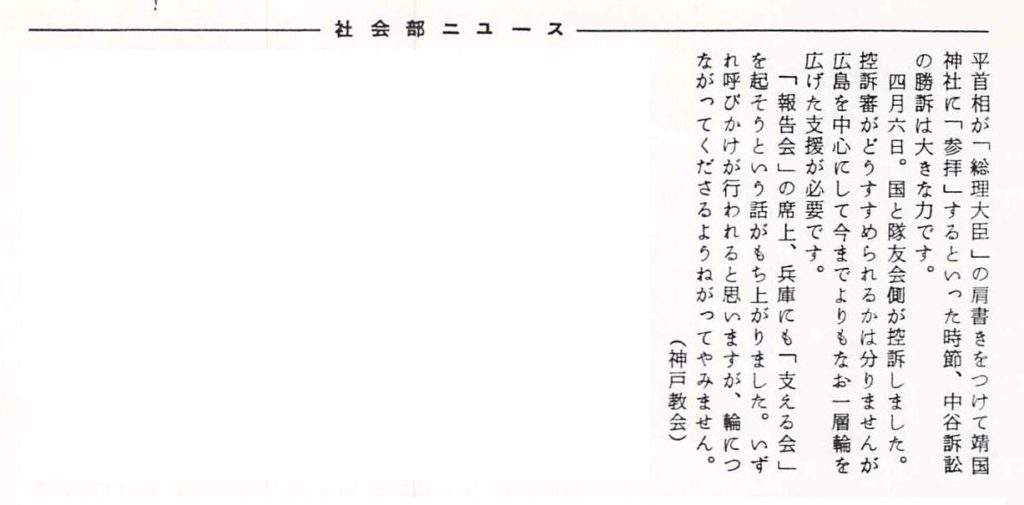 社会部ニュース
平首相が「総理大臣」の肩書きをつけて靖国
神社に「参拝」するといった時節、中谷訴訟
の勝訴は大きな力です。
四月六日。国と隊友会側が控訴しました。
控訴審がどうすすめられるかは分りませんが
広島を中心にして今までよりもなお一層輪を
広げた支援が必要です。
「報告会」の席上、兵庫にも「支える会」
を起そうという話がもち上がりました。いず
れ呼びかけが行われると思いますが、輪につ
ながってくださるようねがってやみません。
（神戸教会）